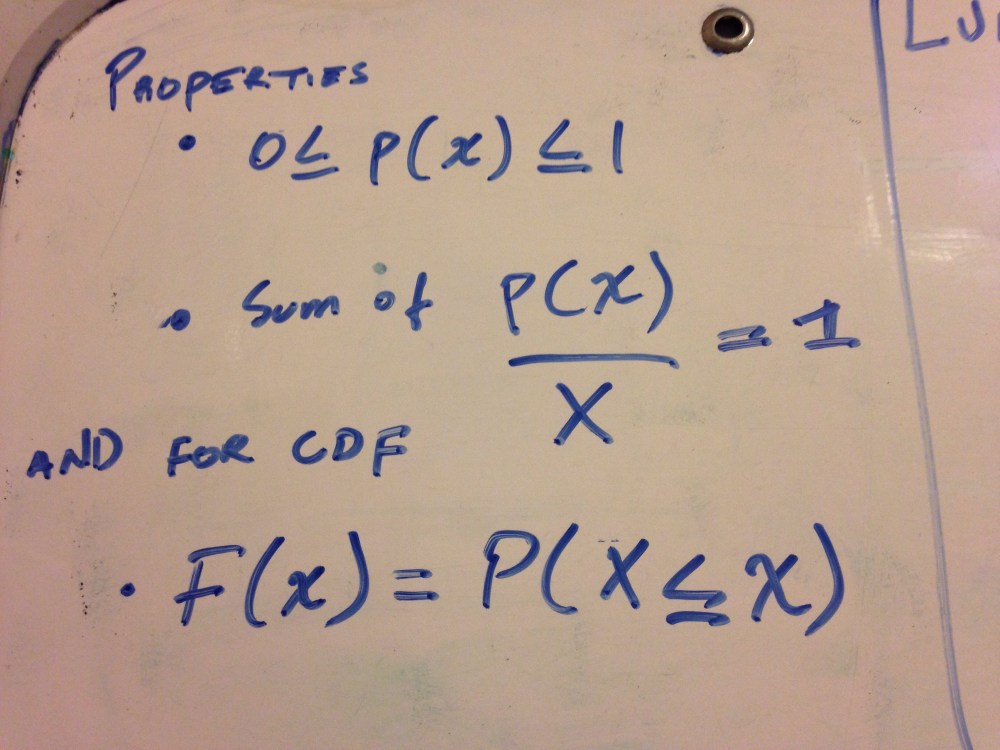 PROPERTIES
• 0 ≤ p(x) ≤ 1
• Sum of p(x)/X = 1
AND FOR CDF
• F(x) = P(X ≤ x)